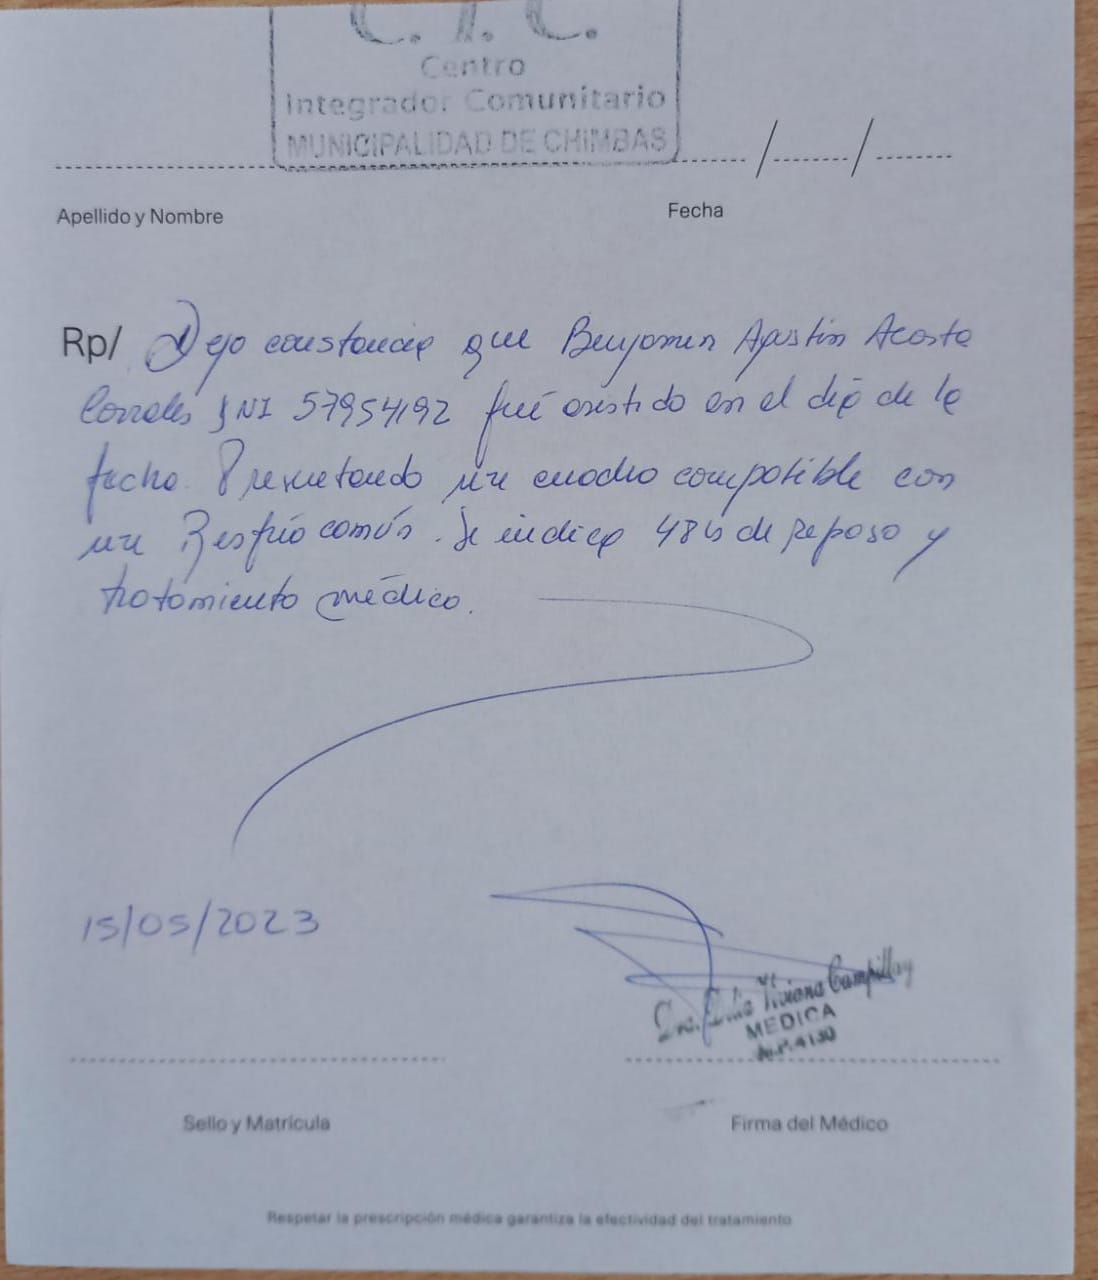 C. I. C.
Centro
Integrador Comunitario
MUNICIPALIDAD DE CHIMBAS
/ /
Apellido y Nombre
Fecha
Rp/ Dejo constancia que Benjamin Agustin Acosta
Corrales DNI 57954192 fué asistido en el día de la
fecha. Presentando un cuadro compatible con
un Resfrío común. Se indica 48 hs de reposo y
tratamiento médico.
15/05/2023
Dra. Viviana Campillay
MEDICA
M.P. 4130
Sello y Matrícula
Firma del Médico
Respetar la prescripción médica garantiza la efectividad del tratamiento